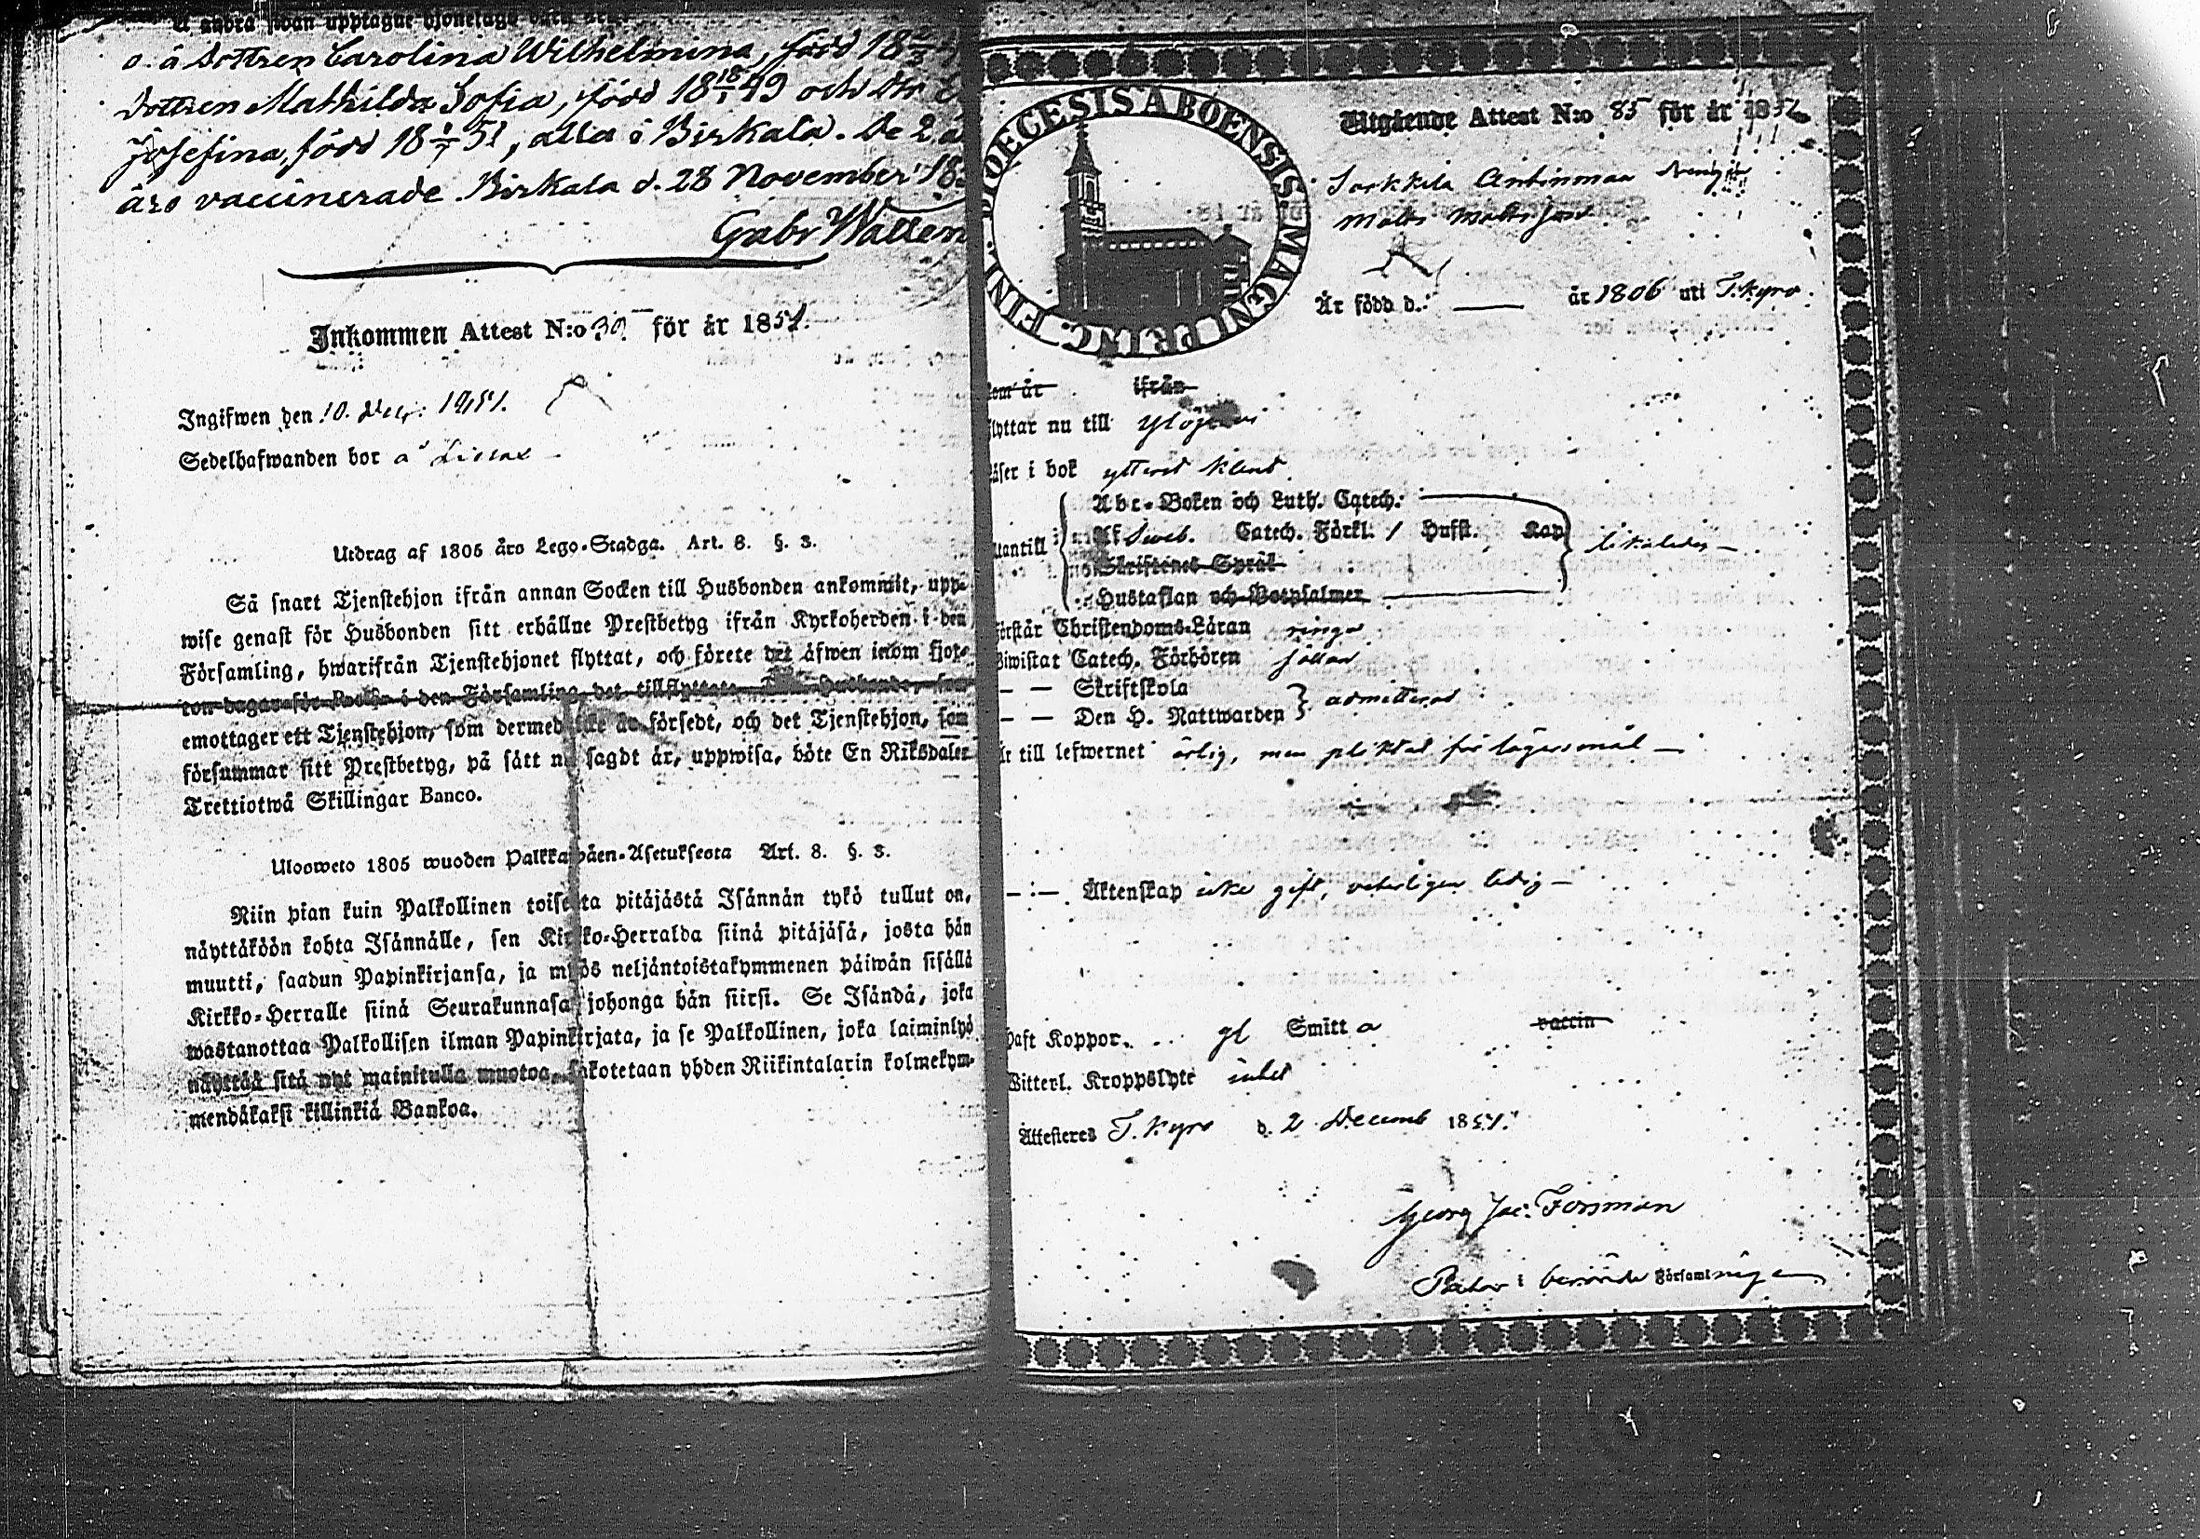 å andra sidan upptagne hjonelags barn äro:
o. ä Dottren Carolina Wilhelmina, född 18
Dottren Mathilda Sofia, född 18 18/1 49 och dtr
Josefina, född 18 1/7 51, alla i Birkala. De 2
äro vaccinerade. Birkala d. 28 November 18
Gabr Wallen
Inkommen Attest N:o 39 för år 1851.
Ingifwen den 10. Dec: 1851.
Sedelhafwanden bor å
Utdrag af 1805 års Lego-Stadga. Art. 8. §. 3.
Så snart Tjenstehjon ifrån annan Socken till Husbonden ankommit, upp-
wise genast för Husbonden sitt erhållne Prestbetyg ifrån Kyrkoherden i den
Församling, hwarifrån Tjenstehjonet flyttat, och förete det äfwen inom fjor-
ton dagar för i den Församling det tillflyttat. Husbonde, som
emottager ett Tjenstehjon, som dermed icke är försedt, och det Tjenstehjon, som
försummar sitt Prestbetyg, på sätt nu sagdt är, uppwisa, böte En Riksdaler
Trettiotwå Skillingar Banco.
Ulosweto 1805 wuoden Palkkawäen-Asetuksesta Art. 8. §. 3.
Niin pian kuin Palkollinen toisesta pitäjästä Isännän tykö tullut on,
näyttäköön kohta Isännälle, sen Kirkko-Herralda siinä pitäjäsä, josta hän
muutti, saadun Papinkirjansa, ja myös neljäntoistakymmenen päiwän sisällä
Kirkko-Herralle siinä Seurakunnasa johonga hän siirsi. Se Isändä, joka
wastanottaa Palkollisen ilman Papinkirjata, ja se Palkollinen, joka laiminlyö
näyttää sitä nyt mainitulla muotoa, sakotetaan yhden Riikintalarin kolmekym-
mendäkaksi killinkiä Bankoa.
DIOECESIS ABOENSIS. MAGNI PRINC. FINL.
Utgående Attest N:o 85 för år 1851
Sorkkila Antinmaa
Matts Mattsson
Är född d.: — år 1806 uti T.kyro.
som är ifrån
flyttar nu till Ylöjärvi
läser i bok ytterst klent
Abc-Boken och Luth. Catech:
Utantill Af Sweb. Catech. Förkl. / Hufst. Kap likaledes —
Skriftenes Språk
Hustaflan och Botpsalmer
förstår Christendoms-Läran ringa
Biwistat Catech. Förhören sällan
— — Skriftskola
— — Den H. Nattwarden admitterad
är till lefwernet ärlig, men pliktat för lägersmål —
— : — Äktenskap icke gift, veterligen ledig —
Haft Koppor. . . . gl Smitta vaccin
Witterl. Kroppslyte intet
Attesteres T. kyro d. 2 Decemb 1851.
Georg Jac: Forsman
Pastor i berörde Församlingen